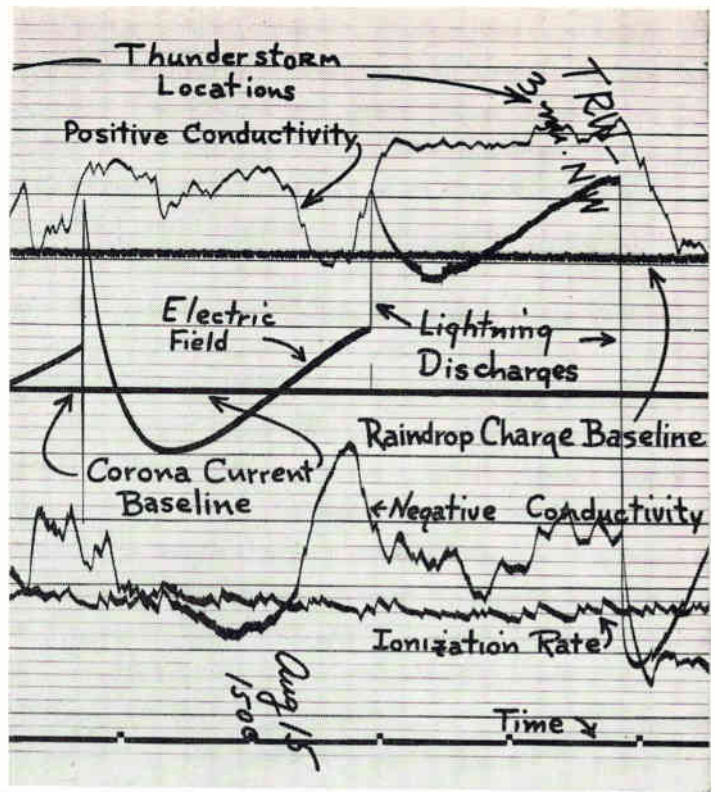 Thunderstorm
Locations
3 mi. NW
TRW-
Positive Conductivity
Electric
Field
Lightning
Discharges
Raindrop Charge Baseline
Corona Current
Baseline
Negative Conductivity
Ionization Rate
Aug 15
1500
Time